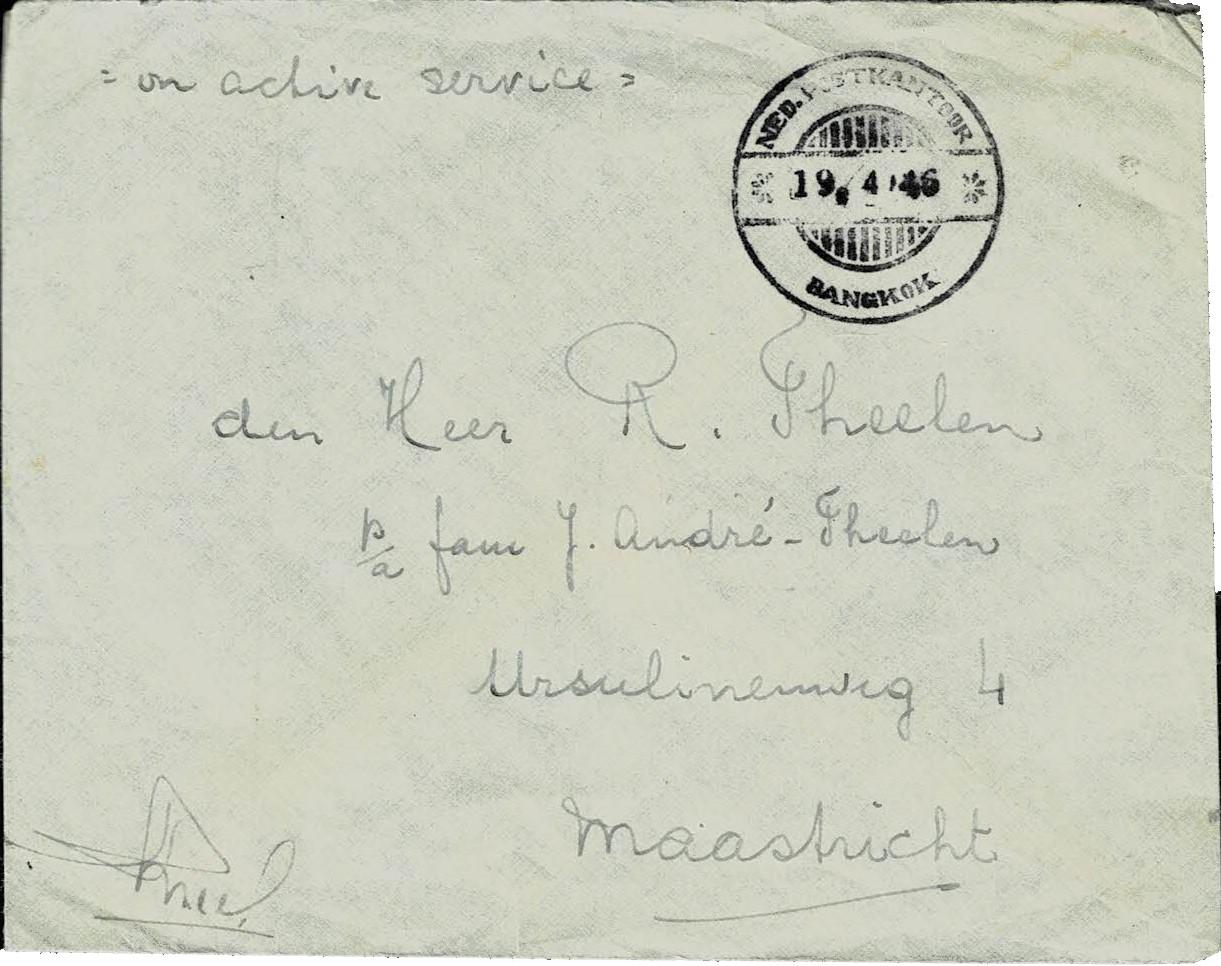 = on active service =
NED. POSTKANTOOR
19. 4 46
BANGKOK
den Heer R. Theelen
p/a fam J. André-Theelen
Ursulinenweg 4
Maastricht